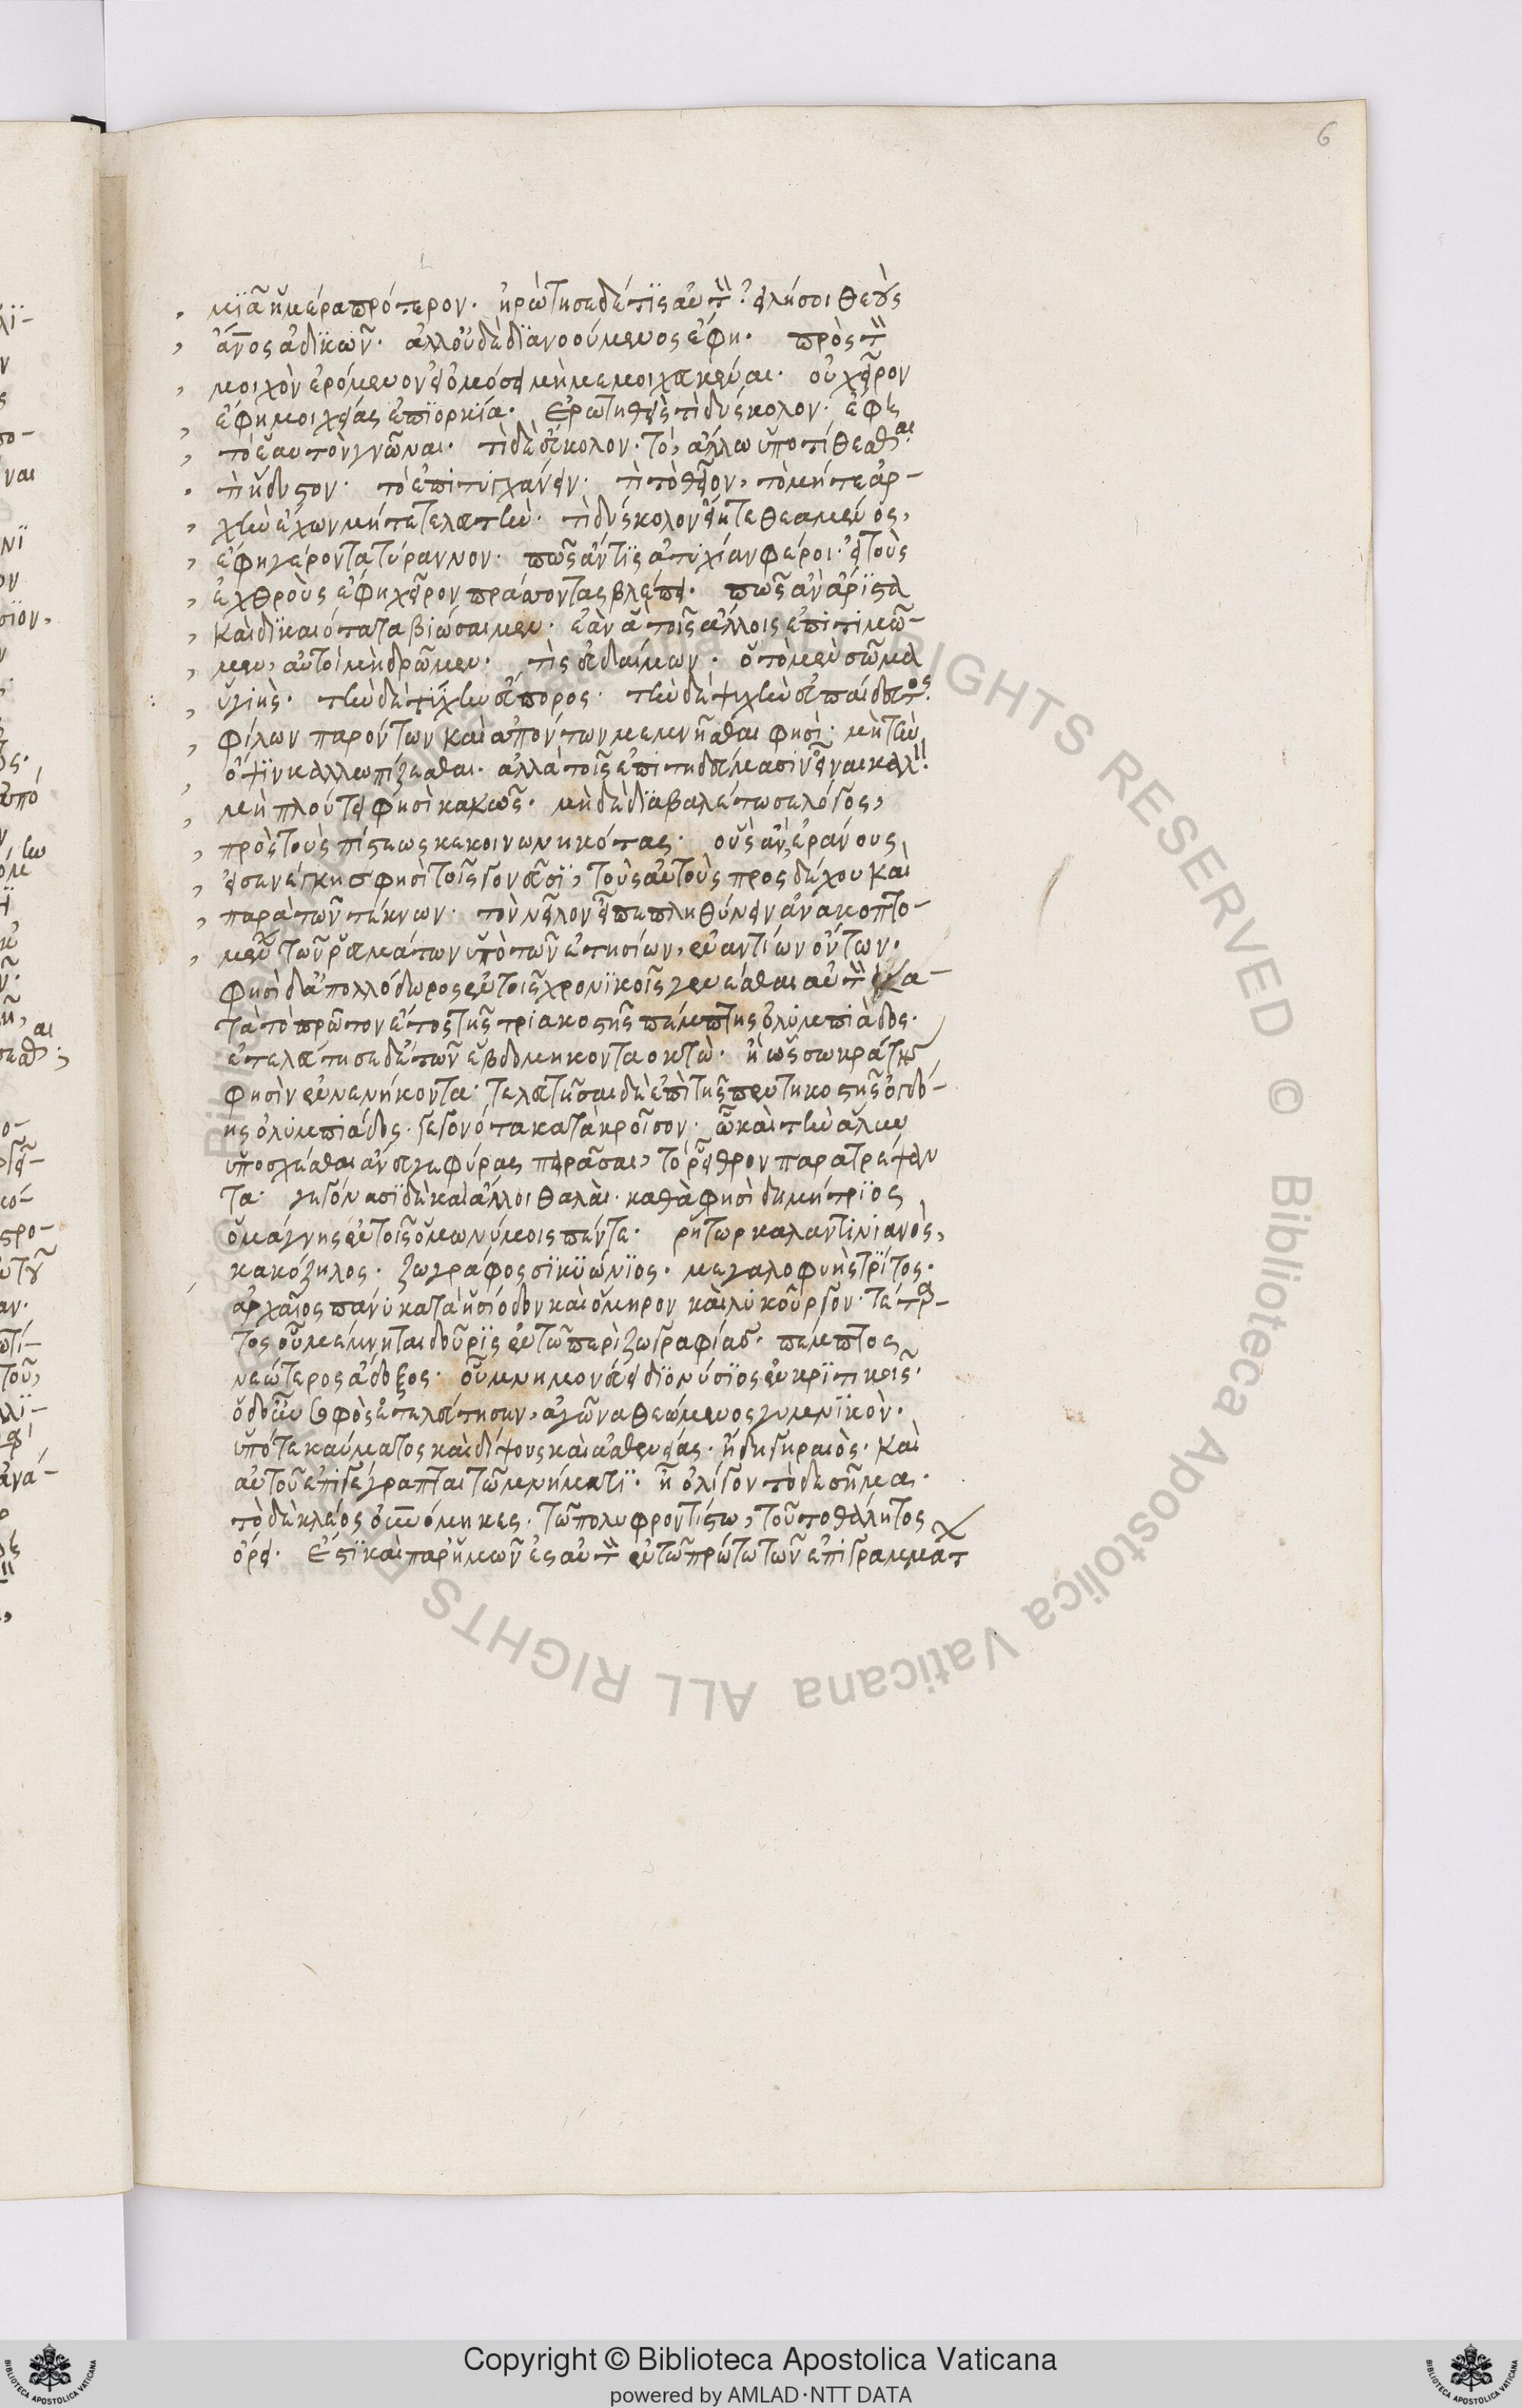 6
μϊᾶ ἡμέρα πρότερον. ἠρώτησε δέ τϊς αὐτὸν. εἰ λήσοι θεοὺς
ἄνος ἀδϊκῶν. ἀλλ' οὐδὲ δϊανοούμενος ἔφη. πρὸς τὸν
μοιχὸν ἐρόμενον εἰ ὀμόσει μὴ μεμοιχευκέναι. οὐ χεῖρον
ἔφη μοιχείας ἐπϊορκία. Ἐρωτηθεὶς τὶ δύσκολον. ἔφη
τὸ ἑαυτὸν γνῶναι. τὶ δὲ εὔκολον. τὸ, ἄλλω ὑποτίθεσθαι.
τὶ ἥδυστον. τὸ ἐπιτυγχάνειν. τὶ τὸ θεῖον, τὸ μήτε ἀρ-
χὴν ἔχων μήτε τελευτὴν. τὶ δύσκολον εἴη τεθεαμένος,
ἔφη γέροντα τύραννον. πῶς ἄν τϊς ἀτυχίαν φέροι. εἰ τοὺς
ἐχθροὺς ἔφη χεῖρον πράσσοντας βλέπει. πῶς ἂν ἄρϊστα
καὶ δϊκαιότατα βιώσαιμεν. ἐὰν ἃ τοῖς ἄλλοις ἐπιτιμῶ-
μεν, αὐτοὶ μὴ δρῶμεν. τὶς εὐδαίμων. ὁ τὸ μὲν σῶμα
ὑγιὴς. τὴν δὲ τύχην εὔπορος. τὴν δὲ ψυχὴν εὐπαίδευτος.
φίλων παρόντων καὶ ἀπόντων μεμνῆσθαι φησὶ. μὴ τὴν
ὄψϊν καλλωπίζεσθαι. ἀλλὰ τοῖς ἐπιτηδεύμασιν εἶναι καλὸν.
μὴ πλούτει φησὶ κακῶς. μὴ δὲ δϊαβαλέτω σε λόγος,
πρὸς τοὺς πίστεως κεκοινωνηκότας. οὓς ἂν ἐράνους
εἰσενέγκης φησὶ τοῖς γονεῦσϊ, τοὺς αὐτοὺς προσδέχου καὶ
παρὰ τῶν τέκνων. τὸν νεῖλον εἶπε πληθύνειν ἀνακοπτο-
μένων τῶν ῥευμάτων ὑπὸ τῶν ἐτησίων, ἐναντίων ὄντων.
φησὶ δ' ἀπολλόδωρος ἐν τοῖς χρονϊκοῖς γενέσθαι αὐτὸν κα-
τὰ τὸ πρῶτον ἔτος τῆς τριακοστῆς πέμπτης ὀλυμπιάδος.
ἐτελεύτησε δ' ἐτῶν ἑβδομήκοντα οκτὼ. ἢ ὡς σωκράτης
φησὶν ἐνενήκοντα. τελευτῆσαι δὲ ἐπὶ τῆς πεντηκοστῆς ὀγδό-
ης ὀλυμπιάδος. γεγονότα κατὰ κροῖσον. ὧ καὶ τὴν ἅλυν
ὑποσχέσθαι ἄνευ γεφύρας περᾶσαι, τὸ ῥεῖθρον παρατρέψαν
τα. γεγόνασϊ δὲ καὶ ἄλλοι θαλαῖ. καθὰ φησὶ δημήτρϊος
ὁ μάγνης ἐν τοῖς ὁμωνύμοις πέντε. ῥήτωρ καλαντινιανὸς,
κακόζηλος. ζωγράφος σϊκϋώνϊος. μεγαλοφυὴς τρϊτος.
ἀρχαῖος πάνυ κατὰ ἡσίοδον καὶ ὅμηρον καὶ λυκοῦργον. τέταρ-
τος οὗ μέμνηται δοῦρϊς ἐν τῶ περὶ ζωγραφίας. πέμπτος
νεώτερος ἄδοξος. οὗ μνημονεύει δϊονύσϊος ἐν κρϊτικοῖς.
ὁ δ' οὖν σοφὸς ἐτελεύτησεν, ἀγῶνα θεώμενος γυμνϊκὸν.
ὑπό τε καύματος καὶ δίψους καὶ ἀσθενείας. ἤδη γηραιὸς. καὶ
αὐτοῦ ἐπιγέγραπται τῶ μνήματϊ. ἦ ὀλίγον τόδε σῆμα.
τὸ δὲ κλέος οὐρανόμηκες. τῶ πολυφροντίστω, τοῦτο θάλητος
ὅρει. Ἔστϊ καὶ παρ' ἡμῶν ἐς αὐτὸν ἐν τῶ πρώτω τῶν ἐπιγραμμάτ
Copyright © Biblioteca Apostolica Vaticana
powered by AMLAD·NTT DATA